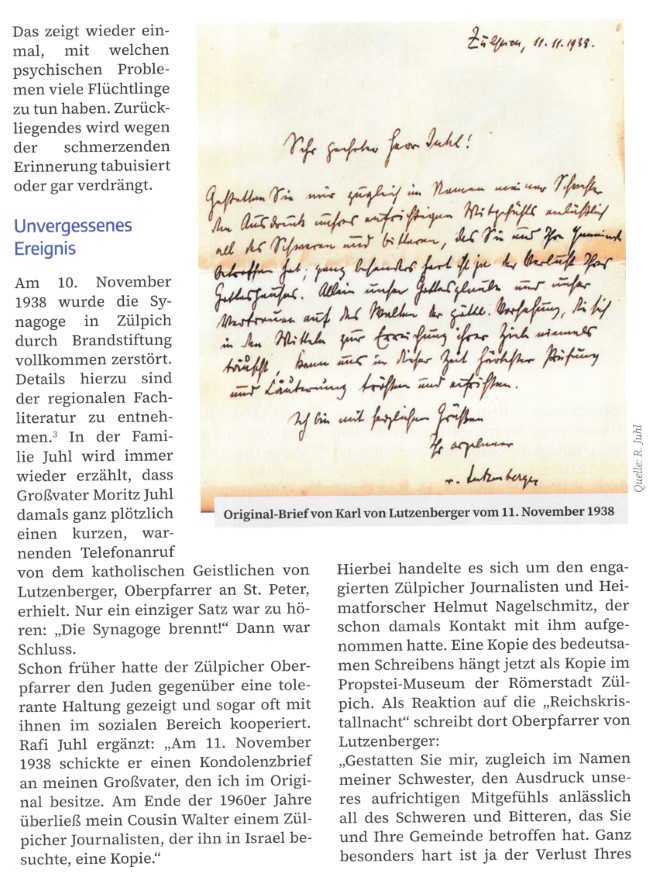 Das zeigt wieder ein-
mal, mit welchen
psychischen Proble-
men viele Flüchtlinge
zu tun haben. Zurück-
liegendes wird wegen
der schmerzenden
Erinnerung tabuisiert
oder gar verdrängt.
Unvergessenes
Ereignis
Am 10. November
1938 wurde die Sy-
nagoge in Zülpich
durch Brandstiftung
vollkommen zerstört.
Details hierzu sind
der regionalen Fach-
literatur zu entneh-
men.³ In der Fami-
lie Juhl wird immer
wieder erzählt, dass
Großvater Moritz Juhl
damals ganz plötzlich
einen kurzen, war-
nenden Telefonanruf
von dem katholischen Geistlichen von
Lutzenberger, Oberpfarrer an St. Peter,
erhielt. Nur ein einziger Satz war zu hö-
ren: „Die Synagoge brennt!“ Dann war
Schluss.
Schon früher hatte der Zülpicher Ober-
pfarrer den Juden gegenüber eine tole-
rante Haltung gezeigt und sogar oft mit
ihnen im sozialen Bereich kooperiert.
Rafi Juhl ergänzt: „Am 11. November
1938 schickte er einen Kondolenzbrief
an meinen Großvater, den ich im Origi-
nal besitze. Am Ende der 1960er Jahre
überließ mein Cousin Walter einem Zül-
picher Journalisten, der ihn in Israel be-
suchte, eine Kopie.“
Zülpich, 11.11.1938.
Sehr geehrter Herr Juhl!
Gestatten Sie mir zugleich im Namen meiner Schwester
den Ausdruck unseres aufrichtigen Mitgefühls anläßlich
all des Schweren und Bitteren, das Sie und Ihre Gemeinde
betroffen hat; ganz besonders hart ist ja der Verlust Ihres
Gotteshauses. Allein unser Gottesglaube und unser
Vertrauen auf das Walten der göttl. Vorsehung, die sich
in den Mitteln zur Erreichung ihrer Ziele niemals
täuscht, kann uns in dieser Zeit härtester Prüfung
und Läuterung trösten und aufrichten.
Ich bin mit herzlichen Grüßen
Ihr ergebener
v. Lutzenberger
Original-Brief von Karl von Lutzenberger vom 11. November 1938
Quelle: R. Juhl
Hierbei handelte es sich um den enga-
gierten Zülpicher Journalisten und Hei-
matforscher Helmut Nagelschmitz, der
schon damals Kontakt mit ihm aufge-
nommen hatte. Eine Kopie des bedeutsa-
men Schreibens hängt jetzt als Kopie im
Propstei-Museum der Römerstadt Zül-
pich. Als Reaktion auf die „Reichskris-
tallnacht“ schreibt dort Oberpfarrer von
Lutzenberger:
„Gestatten Sie mir, zugleich im Namen
meiner Schwester, den Ausdruck unse-
res aufrichtigen Mitgefühls anlässlich
all des Schweren und Bitteren, das Sie
und Ihre Gemeinde betroffen hat. Ganz
besonders hart ist ja der Verlust Ihres